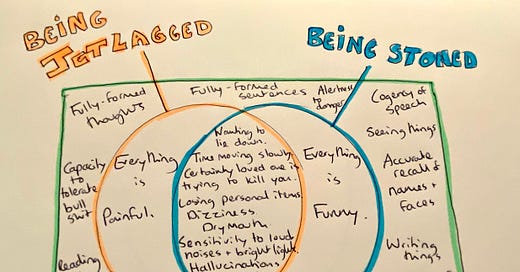 BEING
JETLAGGED
BEING STONED
Fully-formed
thoughts
Fully-formed
sentences
Alertness
to
danger
Cogency of
speech
Seeing things
Capacity
to
tolerate
bull
shit
Everything
is
Painful.
Wanting to
lie down.
Time moving slowly
Certainty loved one is
trying to kill you.
Losing personal items.
Dizziness
Dry mouth
Sensitivity to loud
noises + bright lights
Hallucinations
Everything
is
Funny.
Accurate
recall of
names +
faces
Reading
Writing
things